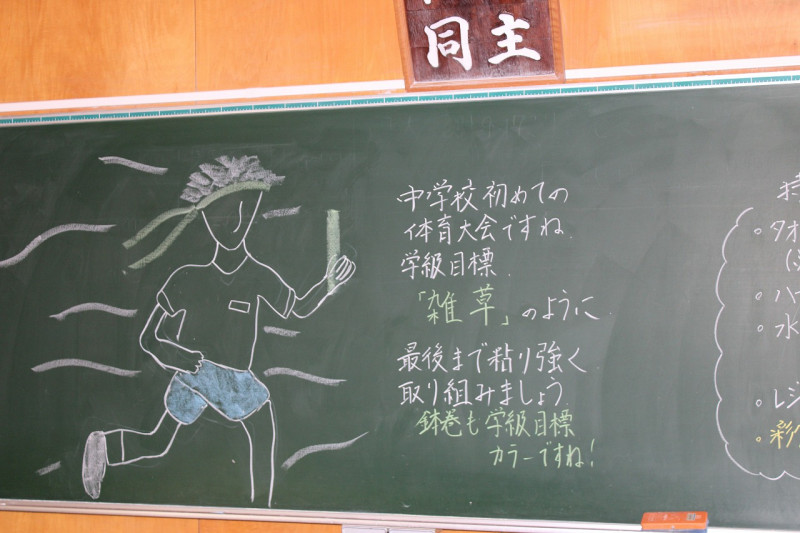 同主
中学校初めての
体育大会ですね
学級目標
「雑草」のように
最後まで粘り強く
取り組みましょう
鉢巻も学級目標
カラーですね!
。タオ
。ハ
。水
。レジ
。彩